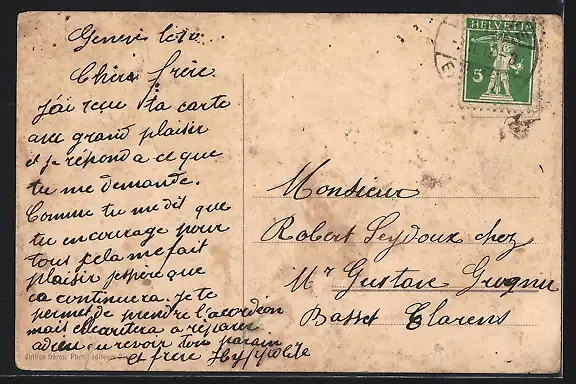 Genève le
Chère frère
j'ai reçu ta carte
avec grand plaisir
et je répond a ce que
tu me demande.
Comme tu me dit que
tu encourage pour
tous cela me fait
plaisir j'espère que
ca continuera. Je te
permet de prendre l'acordéon
mais elle a réparer
adieu au revoir ton parain
et frère Hyppolite
Jullien frères, Phot. éditeurs
HELVETIA
5
Monsieur
Robert Seydoux chez
Mr Gustave
Basset Clarens